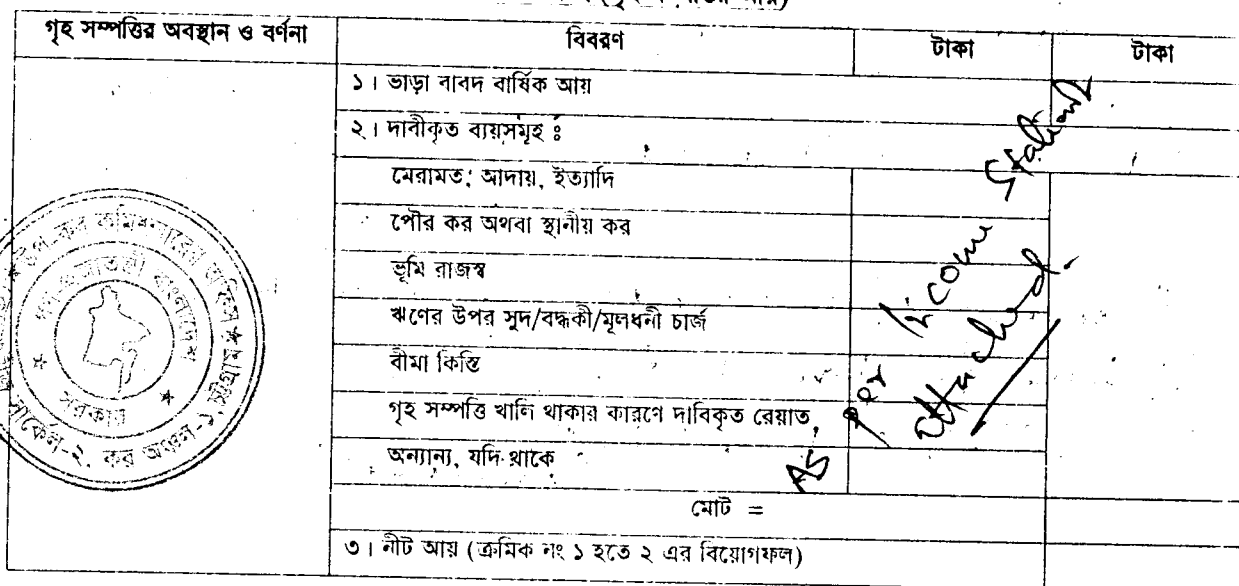 গৃহ সম্পত্তির অবস্থান ও বর্ণনা
বিবরণ
টাকা
টাকা
১। ভাড়া বাবদ বার্ষিক আয়
২। দাবীকৃত ব্যয়সমূহ ঃ
মেরামত, আদায়, ইত্যাদি
পৌর কর অথবা স্থানীয় কর
ভূমি রাজস্ব
ঋণের উপর সুদ/বন্ধকী/মূলধনী চার্জ
বীমা কিস্তি
গৃহ সম্পত্তি খালি থাকার কারণে দাবিকৃত রেয়াত,
অন্যান্য, যদি থাকে
মোট =
৩। নীট আয় (ক্রমিক নং ১ হতে ২ এর বিয়োগফল)
As per Income
attached.
উপ-কর কমিশনারের
গণপ্রজাতন্ত্রী বাংলাদেশ
সরকার
সার্কেল-২, কর অঞ্চল-